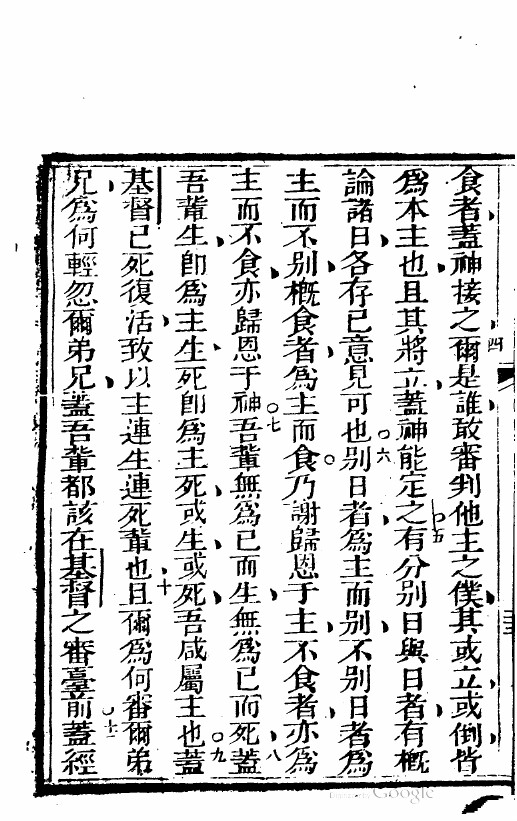 食者蓋神接之四爾是誰敢審判他主之僕其或立或倒皆
爲本主也且其將立蓋神能定之五有分别日與日者有槪
論諸日各存己意見可也六别日者爲主而别不别日者爲
主而不别槪食者爲主而食乃謝歸恩于主不食者亦爲
主而不食亦歸恩于神七吾輩無爲己而生無爲己而死八蓋
吾輩生卽爲主生死卽爲主死或生或死吾咸屬主也九蓋
基督已死復活致以主連生連死輩也十且爾爲何審爾弟
兄爲何輕忽爾弟兄蓋吾輩都該在基督之審臺前十一蓋經
Google